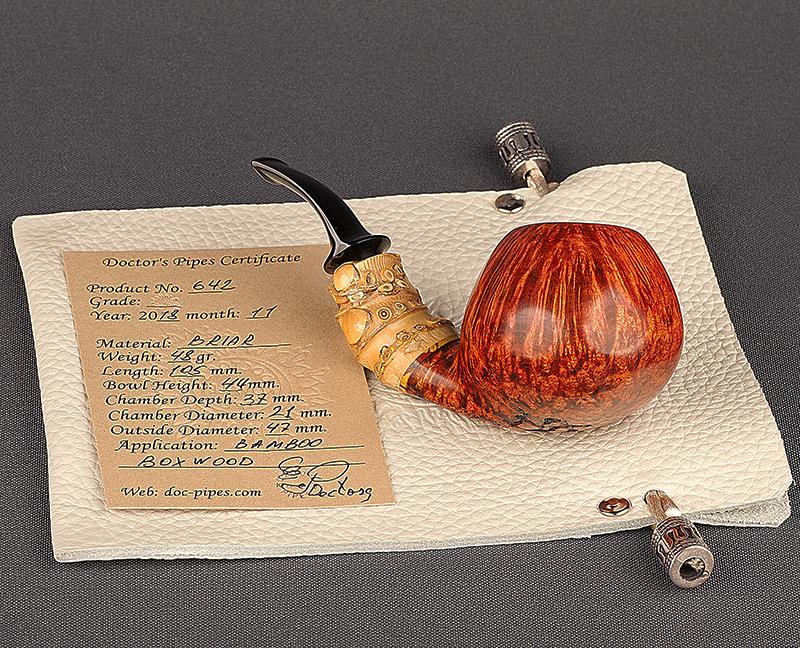 Doctor's Pipes Certificate
Product No. 642
Grade:
Year: 2018 month: 11
Material: BRIAR
Weight: 48 gr.
Length: 105 mm.
Bowl Height: 44 mm.
Chamber Depth: 37 mm.
Chamber Diameter: 21 mm.
Outside Diameter: 47 mm.
Application: BAMBOO
BOXWOOD
Web: doc-pipes.com